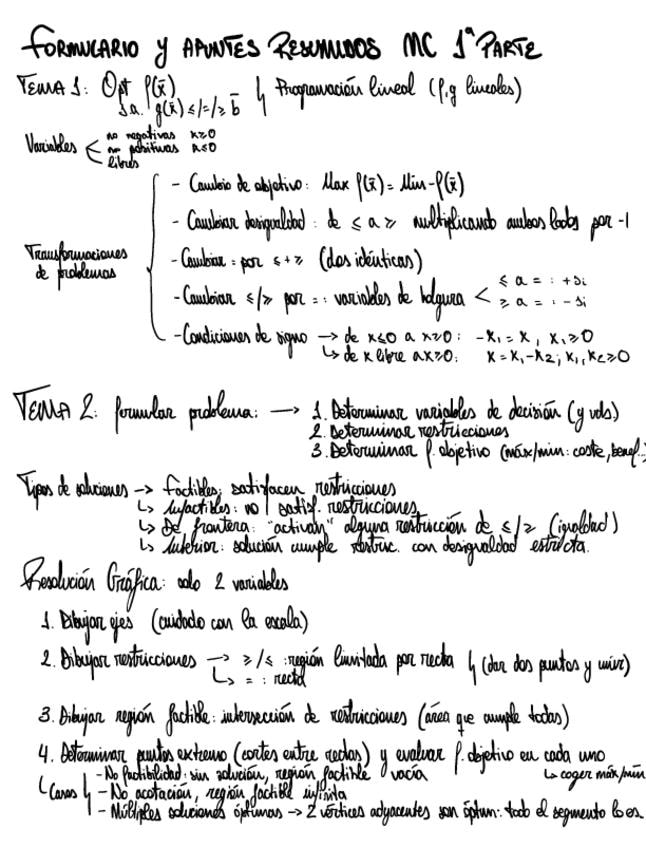 FORMULARIO Y APUNTES RESUMIDOS MC 1ª PARTE
TEMA 1: Opt f(x̄) s.a. g(x̄) ≤/=/≥ b̄ ↳ Programación lineal (f,g lineales)
Variables < no negativas x≥0
no positivas x≤0
libres
Transformaciones de problemas
- Cambio de objetivo: Max f(x̄) = Min -f(x̄)
- Cambiar desigualdad: de ≤ a ≥ multiplicando ambos lados por -1
- Cambiar = por ≤ + ≥ (dos idénticas)
- Cambiar ≤/≥ por = : variables de holgura < ≤ a = : + si
≥ a = : - si
- Condiciones de signo → de x≤0 a x≥0: -x₁ = x, x₁≥0
↳ de x libre a x≥0: x = x₁-x₂; x₁,x₂≥0
TEMA 2: formular problema: → 1. Determinar variables de decisión (y uds.)
2. Determinar restricciones
3. Determinar f. objetivo (máx/min: coste, benef.)
Tipos de soluciones → Factibles: satisfacen restricciones
↳ Infactibles: no satisf. restricciones
↳ De frontera: "activan" alguna restricción de ≤/≥ (igualdad)
↳ Interior: solución cumple restric. con desigualdad estricta.
Resolución Gráfica: solo 2 variables
1. Dibujar ejes (cuidado con la escala)
2. Dibujar restricciones → ≥/≤ : región limitada por recta ↳ (dar dos puntos y unir)
↳ = : recta
3. Dibujar región factible: intersección de restricciones (área que cumple todas)
4. Determinar puntos extremo (cortes entre rectas) y evaluar f. objetivo en cada uno
↳ coger máx/mín
↳ Casos
- No factibilidad: sin solución, región factible vacía
- No acotación, región factible infinita
- Múltiples soluciones óptimas → 2 vértices adyacentes son óptim: todo el segmento lo es.